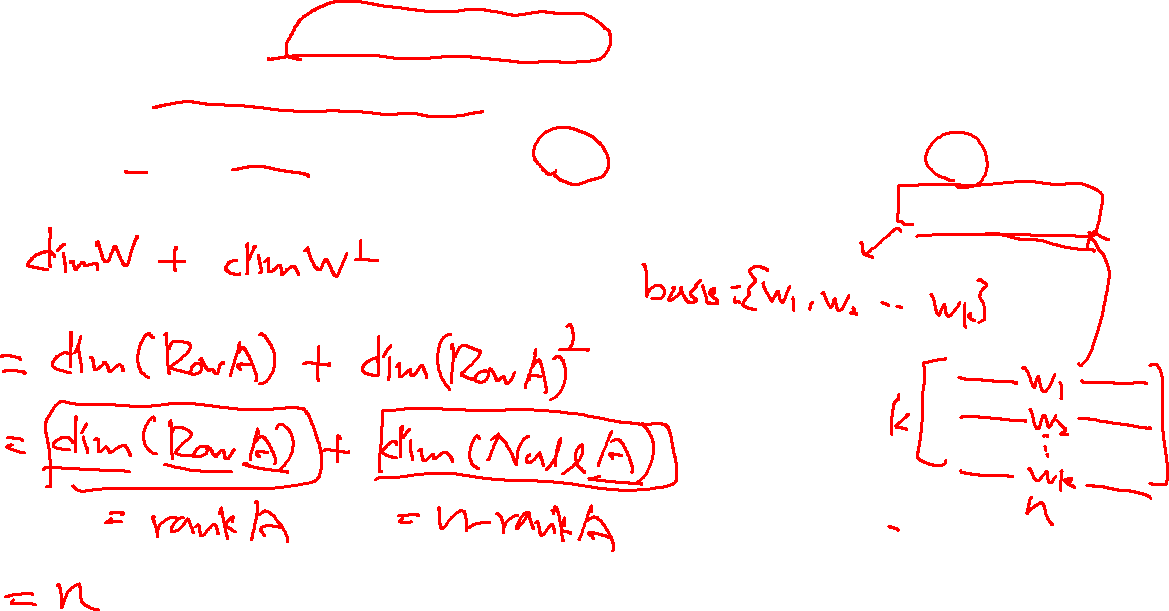 dim W + dim W⊥
= dim (Row A) + dim (Row A)⊥
= dim (Row A) + dim (Null A)
= rank A = n - rank A
= n
basis = {w₁, w₂ ... wₖ}
k [ w₁
w₂
⋮
wₖ ]
n